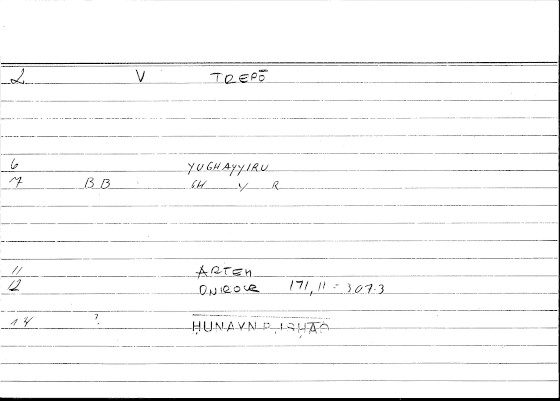 2 V TREPŌ
6 YUGHAYYIRU
7 BB GH Y R
11 ARTEM
12 ONIROCR 171,11 = 307.3
14 ? ḤUNAYN B. ISḤĀQ